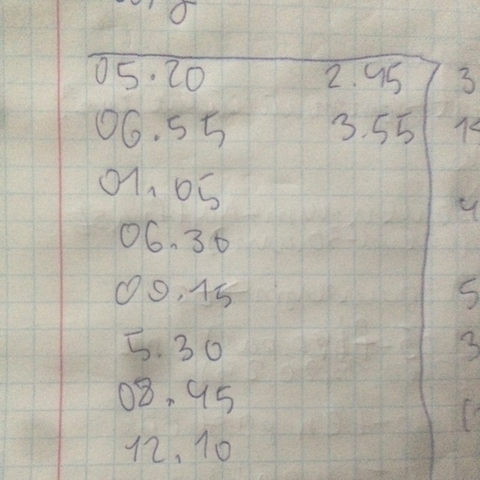 05.20 2.45 3
06.55 3.55
01.05
06.30
09.15
5.30
08.45
12.10